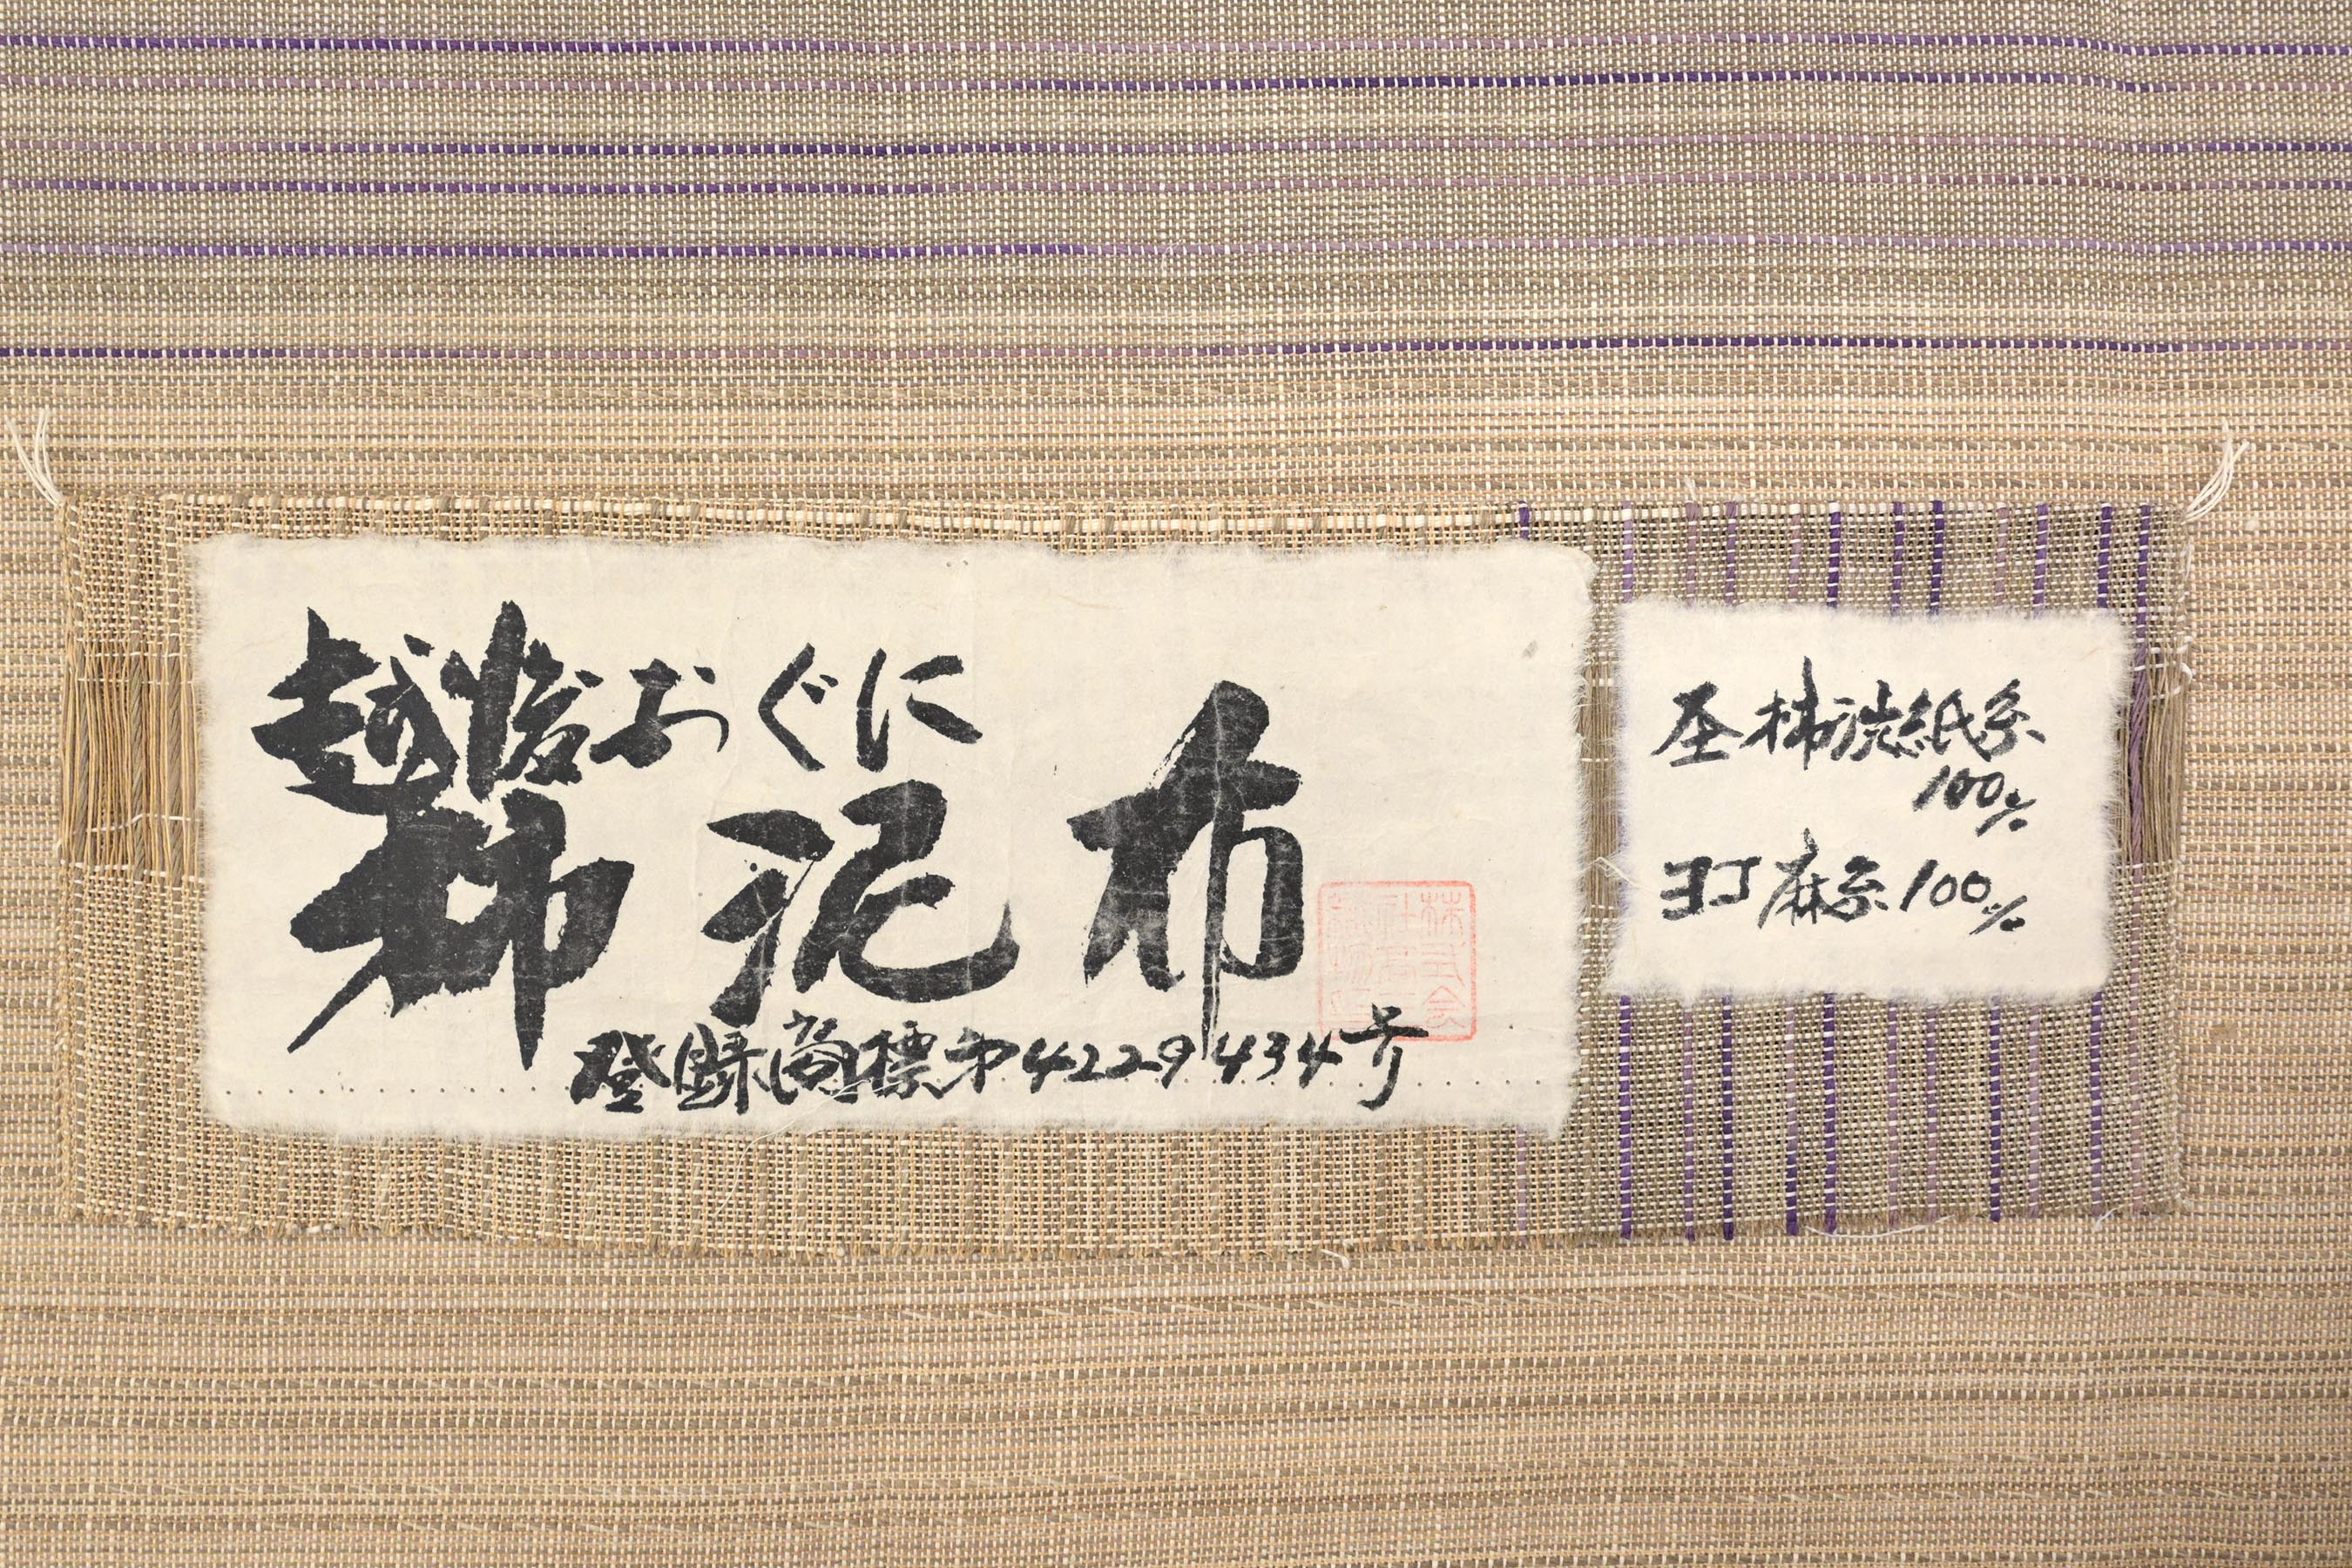 越後おぐに
柿泥布
登録商標第4229434号
圣柿渋紙糸
100%
ヨコ麻糸100%